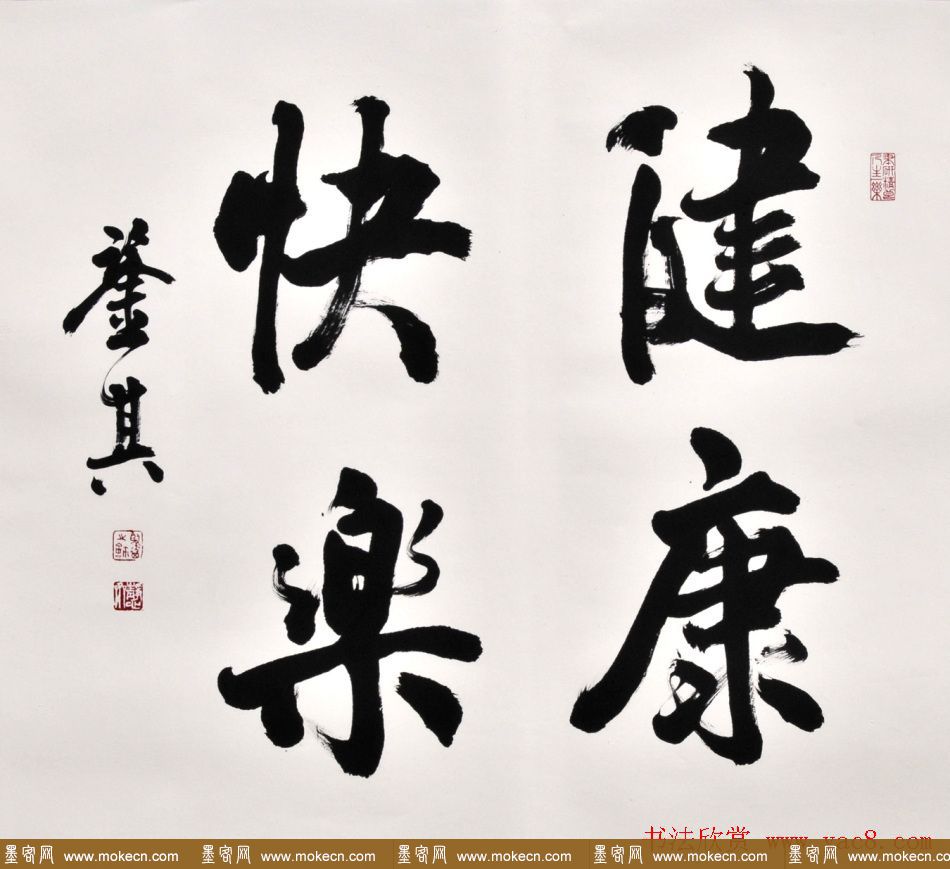 健康
快樂
其
书法欣赏 www.yac8.com
墨客网 www.mokecn.com 墨客网 www.mokecn.com 墨客网 www.mokecn.com 墨客网 www.mokecn.com 墨客网 www.mokecn.com